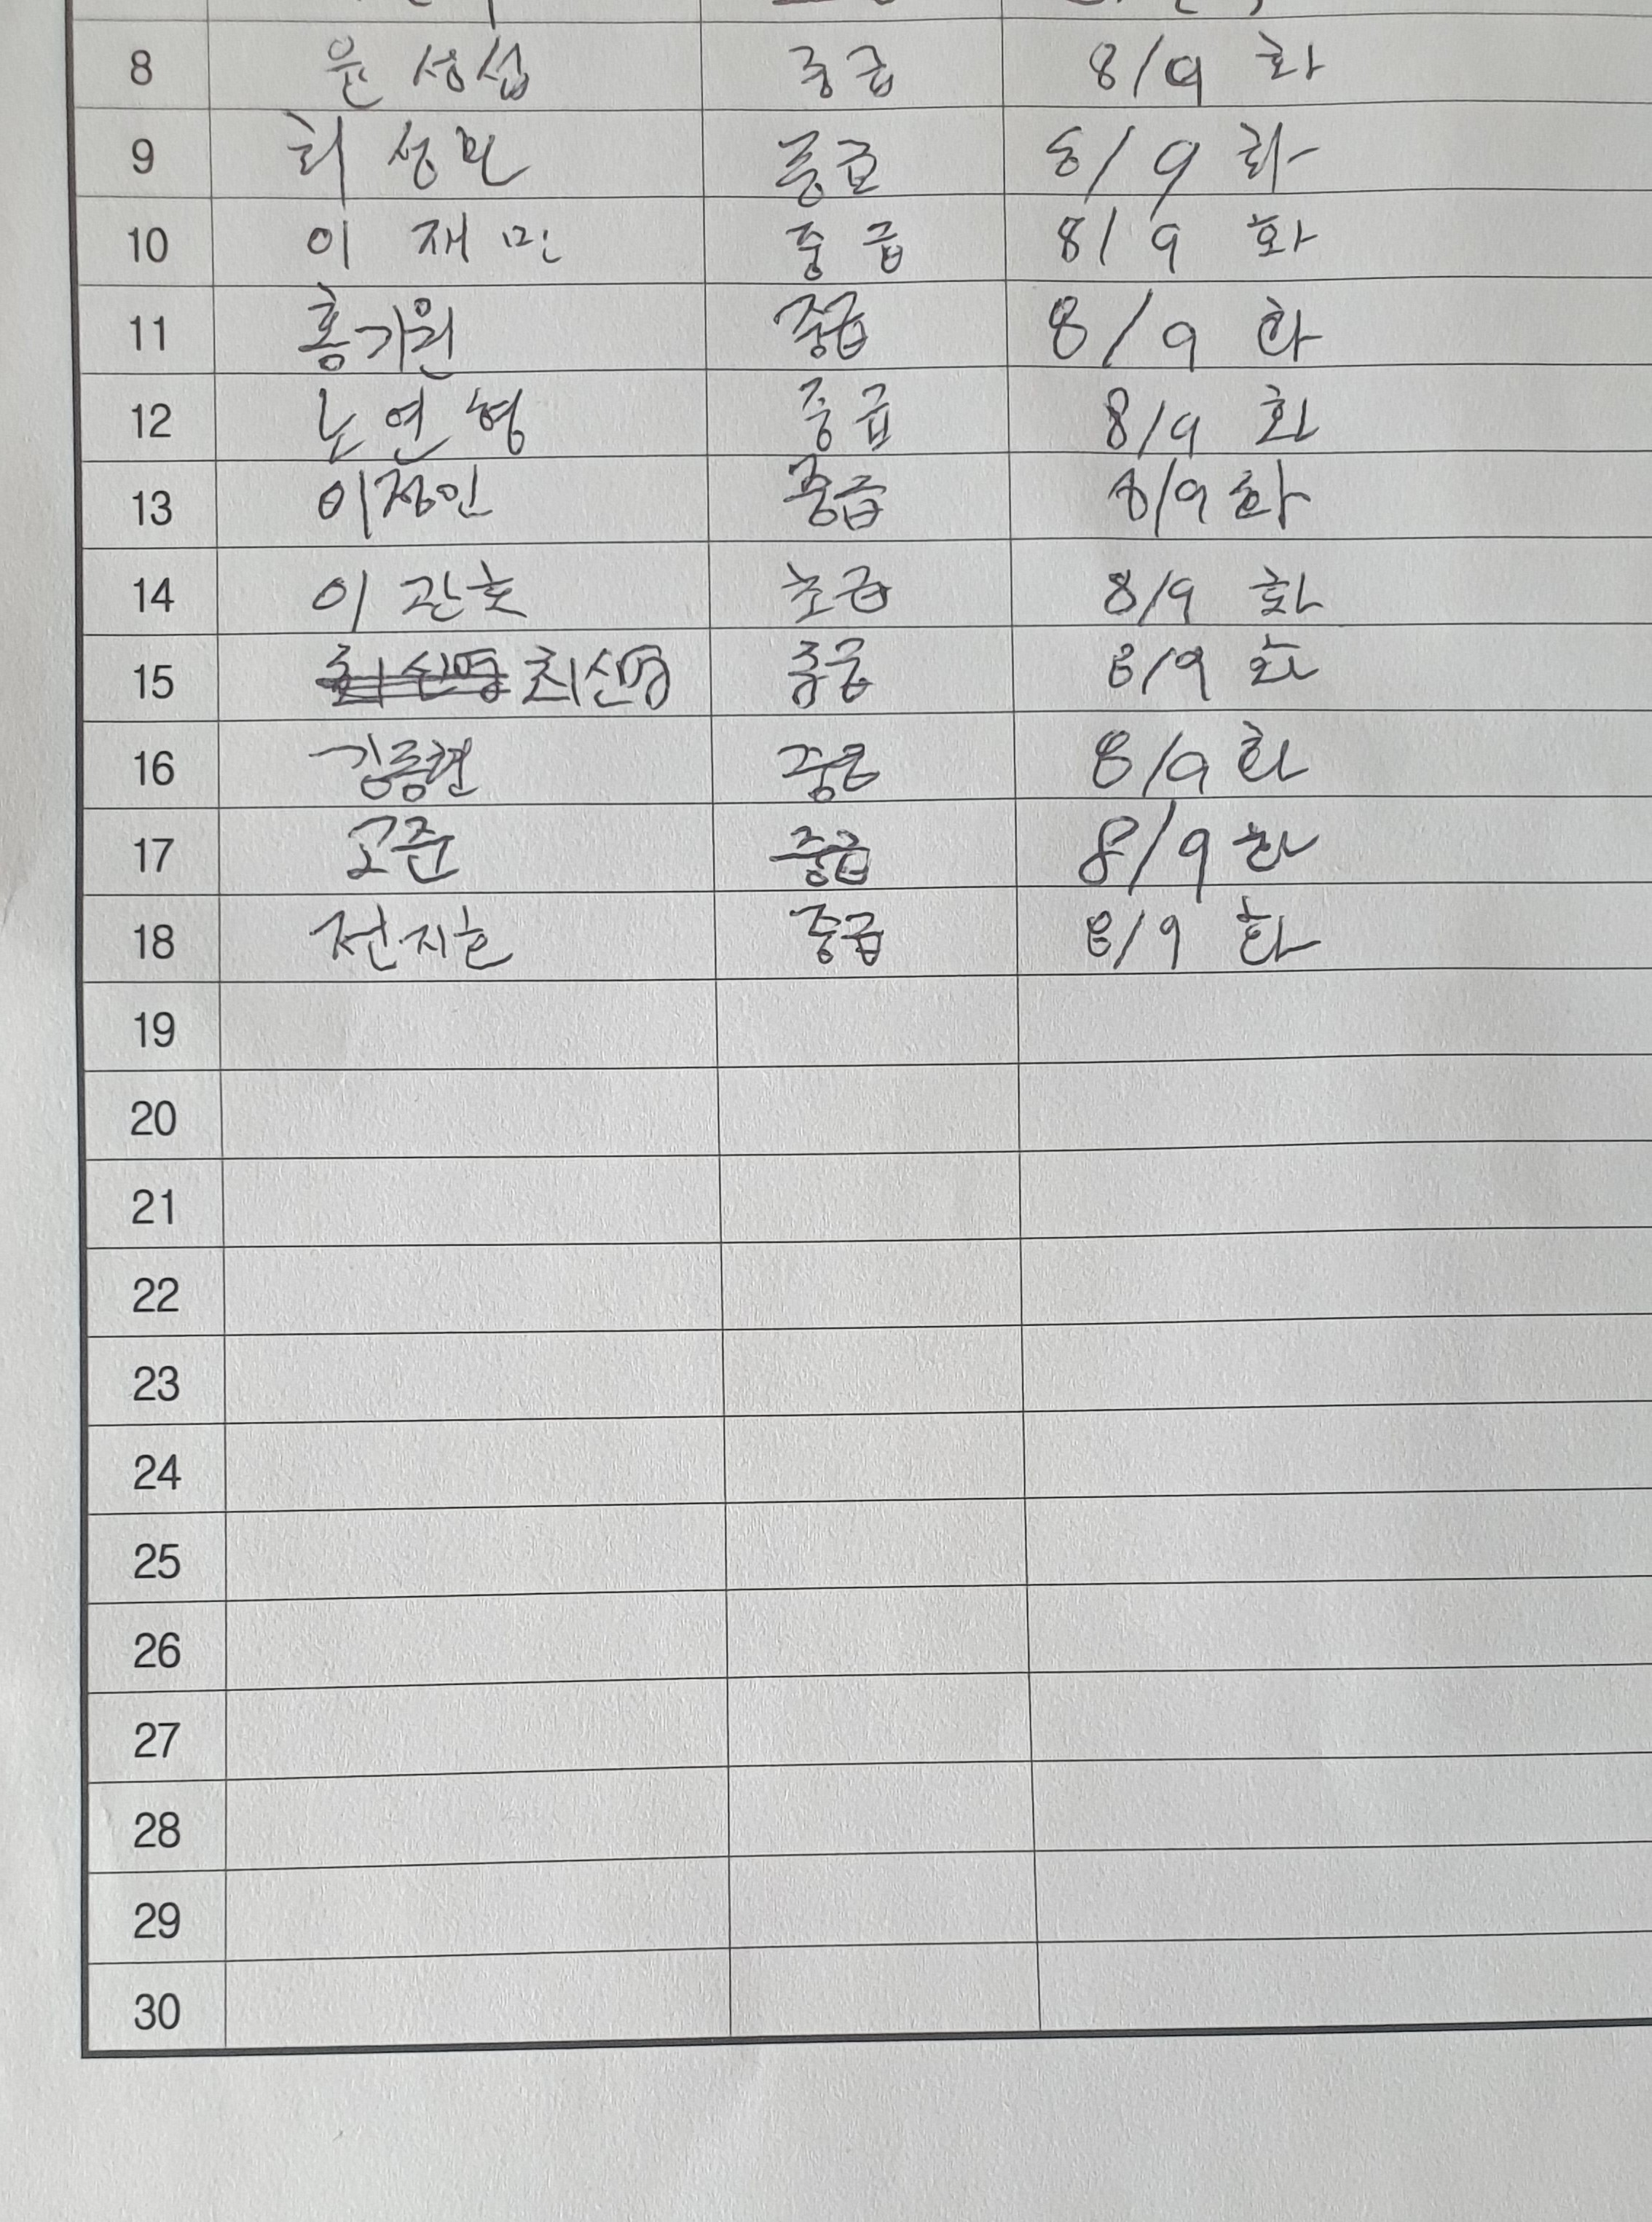 8 윤성섭 중급 8/9 화
9 최성민 중급 8/9 화
10 이재민 중급 8/9 화
11 홍기원 중급 8/9 화
12 노연형 중급 8/9 화
13 이정인 중급 8/9 화
14 이관호 초급 8/9 화
15 최신명 최신명 중급 8/9 화
16 김종현 8/9 화
17 고준 중급 8/9 화
18 전지호 중급 8/9 화
19
20
21
22
23
24
25
26
27
28
29
30